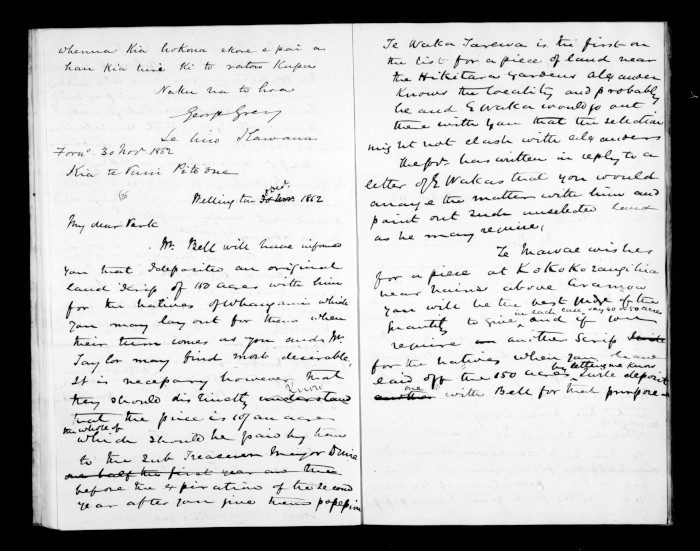 whenua kia hokona ekore e pai a
hau kia tuie ki to ratou Kupu
Naku na to hoa
George Grey
Te Kino Kawana
30 Nov. 1852
Kia te Puni Pitoone
Welling ton Nov. 1852
Decr.
My dear Park
Mr. Bell will have informed
you that I deposited an original
land scrip of 150 acres with him
for the natives of Whanganui which
you may lay out for them when
their turn comes as you and Mr.
Taylor may find most desirable,
It is necessary however that
they should distinctly understand
know
that the price is 10/ an acre
the whole of
which should be paid by them
to the Sub Treasurer Major Durie
one half the first year and the
before the expiration of the second
year after you give them possession
Te Waka Tarewa is the first on
the list for a piece of land near
the Hiketara Gardens Alexander
knows the locality and probably
he and E Waka would go out
there with you that the selection
might not clash with Alexanders
The Govr. has written in reply to a
letter of E Wakas that you would
arrange the matter with him and
point out such unselected land
as he may require,
Te Mawae wishes
for a piece at
near above Aramoho
you will be the best judge of the
quantity to give and if you
in each case say 20 or 30 acres
require an another scrip
for the natives when you have
laid off the 150 acres I will deposit
by letting me know
another with Bell for that purpose
one